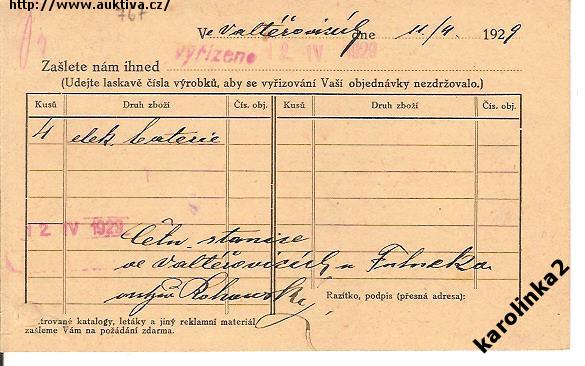 http://www.auktiva.cz/
767
Ve Valtéřovicích dne 11/4. 1929
vyřízeno 12 IV 1929
Zašlete nám ihned
(Udejte laskavě čísla výrobků, aby se vyřizování Vaší objednávky nezdržovalo.)
Kusů Druh zboží Čís. obj. Kusů Druh zboží Čís. obj.
4 elek. baterie
12 IV 1929
Četn. stanice
ve Valtéřovicích u Fulneka
Razítko, podpis (přesná adresa):
trované katalogy, letáky a jiný reklamní materiál
zašleme Vám na požádání zdarma.
karolinka2